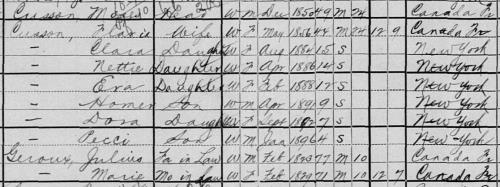 Head W M Dec 1850 49 M 24 Canada Fr
Wife W F May 1856 44 M 24 12 9 Canada Fr
— Clara Daughter W F Aug 1884 15 S New York
— Nettie Daughter W F Apr 1886 14 S New York
— Eva Daughter W F Feb 1888 12 S New York
— Homer Son W M Apr 1891 9 S New York
— Dora Daughter W F Sept 1892 7 S New York
— Son W M Jan 1896 4 S New York
Geroux, Julius Fa in Law W M Feb 1823 77 M 10 Canada Fr
— Marie Mo in Law W F Feb 1829 71 M 10 12 7 Canada Fr